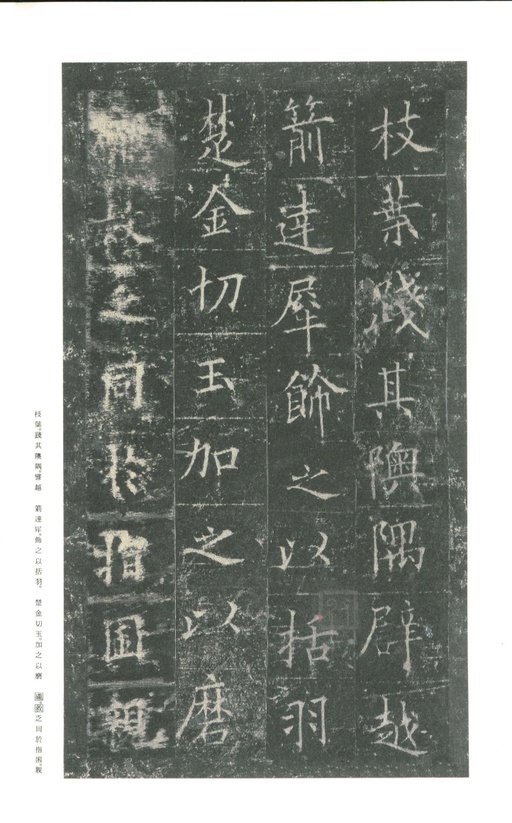 枝葉踐其隩隅辟越
箭達犀飾之以括羽
楚金切玉加之以磨
之同於指囷親
枝葉。踐其隩隅。譬越　箭達犀。飾之以括羽。　楚金切玉。加之以磨　之同於指囷。親